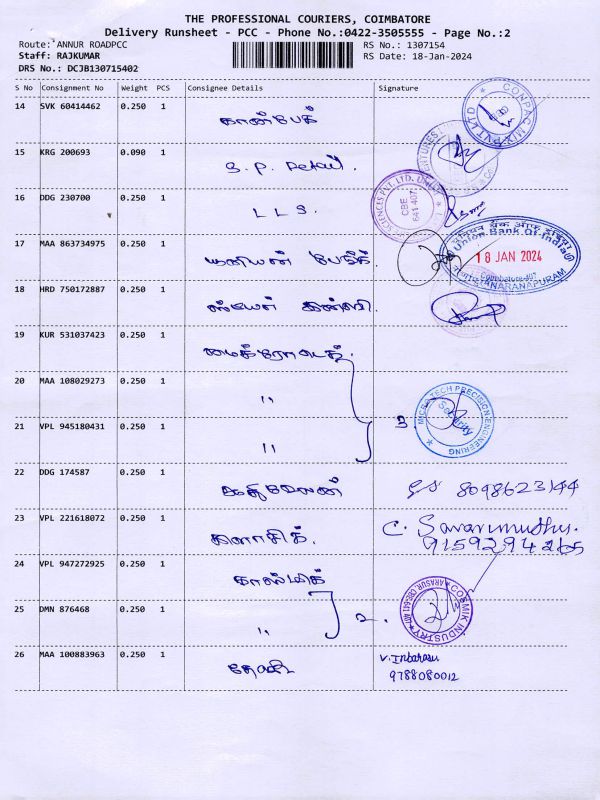 THE PROFESSIONAL COURIERS, COIMBATORE
Delivery Runsheet - PCC - Phone No.:0422-3505555 - Page No.:2
Route: ANNUR ROADPCC RS No.: 1307154
Staff: RAJKUMAR RS Date: 18-Jan-2024
DRS No.: DCJB130715402
S No Consignment No Weight PCS Consignee Details Signature
14 SVK 60414462 0.250 1 கான்பேக்
CONPAC MIX PVT LTD
15 KRG 200693 0.090 1 S. P. Retail.
16 DDG 230700 0.250 1 L L S.
SCIENCES PVT. LTD. UNIT
CBE
641 407
17 MAA 863734975 0.250 1 யூனியன் பேங்க்.
यूनियन बैंक ऑफ इंडिया
Union Bank Of India
18 JAN 2024
Coimbatore-407
18 HRD 750172887 0.250 1
19 KUR 531037423 0.250 1 மைக்ரோ டெக்
20 MAA 108029273 0.250 1 ,,
21 VPL 945180431 0.250 1 ,, 3.
MICRO TECH PRECISION ENGINEERING
Security
22 DDG 174587 0.250 1 கதிர்வேலன் 8098623144
23 VPL 221618072 0.250 1 கிளாசிக். C. Savarimuthu.
9159294265
24 VPL 947272925 0.250 1 காஸ்மிக்
25 DMN 876468 0.250 1 ,, 2.
COSMIK INDUSTRY
ARASUR, CBE-641 407
26 MAA 100883963 0.250 1 V. Inbarasu
9788080012